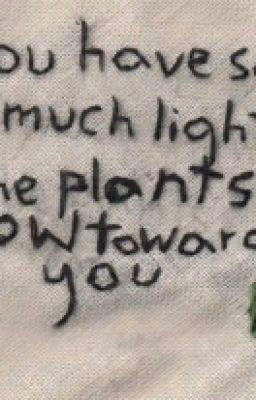 ou have s
much light
he plants
ow toward
you